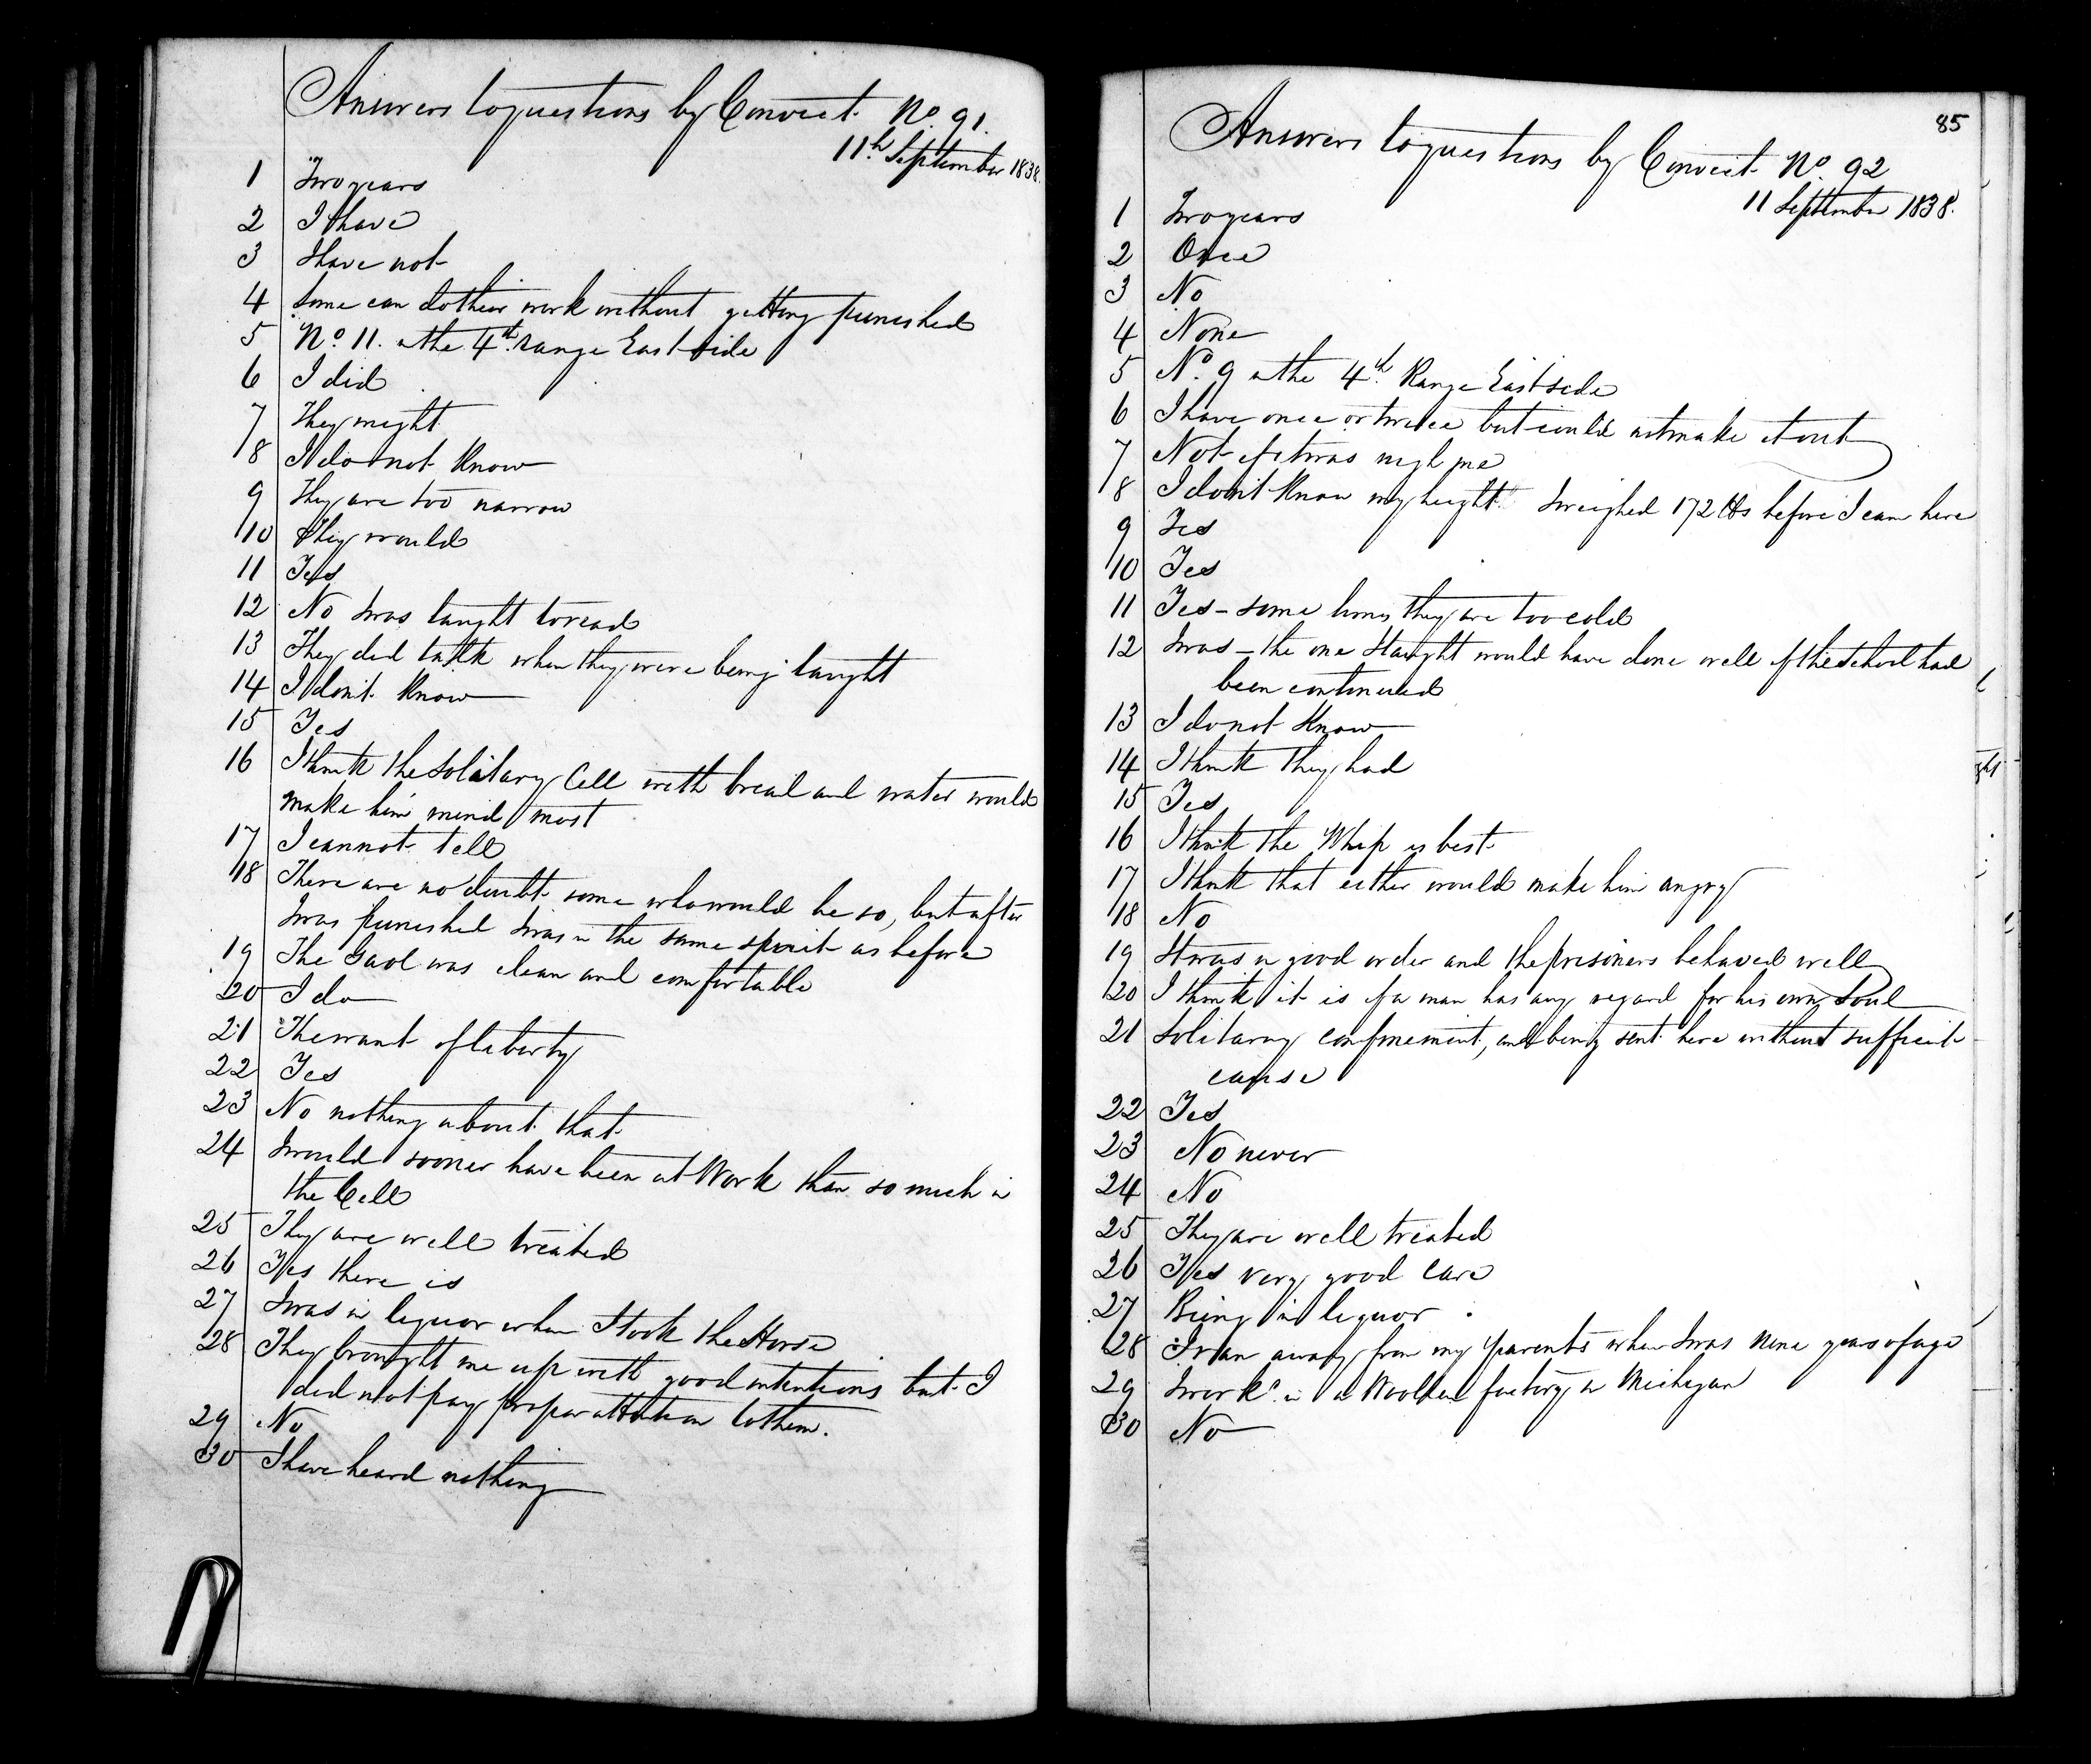 Answers to questions by Convict No. 91.
11th September 1838.
1 Two years
2 I have
3 I have not
4 Some can do their work without getting punished
5 No. 11. in the 4th range East side
6 I did
7 They might
8 I do not Know
9 They are too narrow
10 They would
11 Yes
12 No I was taught to read
13 They did talk when they were being taught
14 I don't Know
15 Yes
16 I think the Solitary Cell with bread and water would
make him mind most
17 I cannot tell
18 There are no doubt some who would be so, but after
I was punished I was in the same spirit as before
19 The Gaol was clean and comfortable
20 I do
21 The want of liberty
22 Yes
23 No nothing about that
24 I would sooner have been at Work than so much in
the Cell
25 They are well treated
26 Yes there is
27 I was in liquor when I took the Horse
28 They brought me up with good intentions but I
did not pay proper attention to them.
29 No
30 I have heard nothing
85
Answers to questions by Convict No. 92
11 September 1838.
1 Two years
2 Once
3 No
4 None
5 No. 9 in the 4th Range East side
6 I have once or twice but could not make it out
7 Not if it was nigh me
8 I don't Know my height. I weighed 172 lbs before I cam here
9 Yes
10 Yes
11 Yes - some times they are too cold
12 I was - the one I taught would have done well if the school had
been continued
13 I do not Know
14 I think they had
15 Yes
16 I think the Whip is best
17 I think that either would make him angry
18 No
19 It was in good order and the prisoners behaved well
20 I think it is if a man has any regard for his own Soul
21 Solitary confinement, and being sent here without sufficient
cause
22 Yes
23 No never
24 No
25 They are well treated
26 Yes very good care
27 Being in liquor
28 I ran away from my parents when I was nine years of age
29 I workd. in a Woollen factory in Michigan
30 No